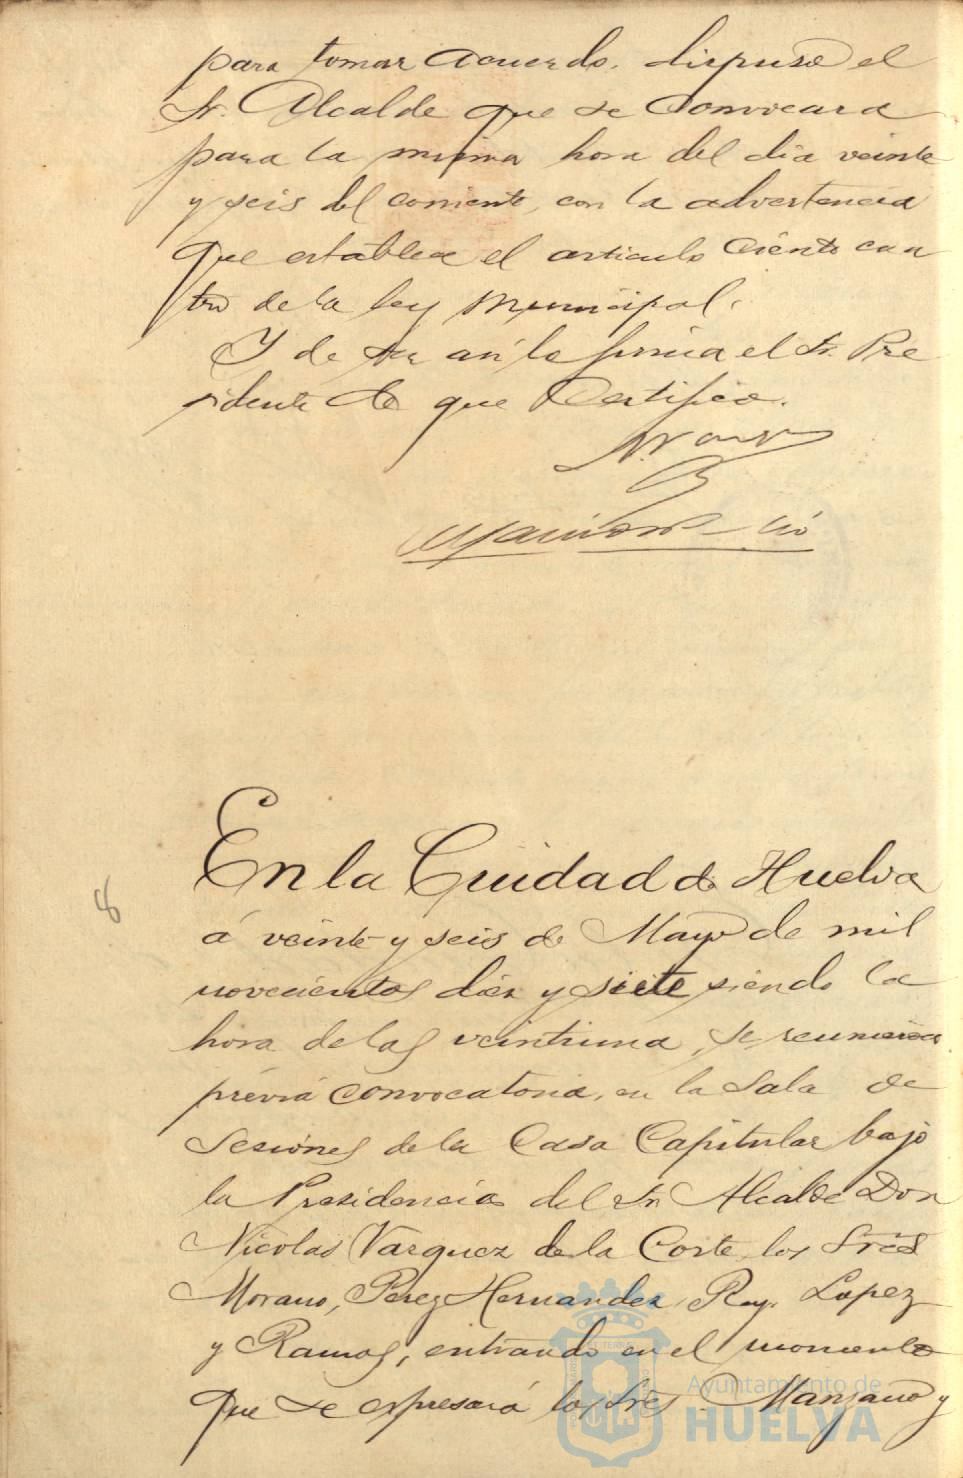 para tomar acuerdo, dispuso el
Sr. Alcalde que se convocara
para la misma hora del dia veinte
y seis del corriente, con la advertencia
que establece el articulo ciento cua
tro de la ley Municipal.
Y de ser así lo firma el Sr. Pre
sidente de que Certifico.
En la Ciudad de Huelva
á veinte y seis de Mayo de mil
novecientos diez y siete siendo la
hora de las veintiuna, se reunieron
prévia convocatoria, en la Sala de
Sesiones de la Casa Capitular bajo
la Presidencia del Sr. Alcalde Don
Nicolas Vazquez de la Corte, los Sres
Morano, Perez Hernandez, Rey, Lopez
y Ramos, entrando en el momento
que se expresará los Sres. Manzano y
8
Ayuntamiento de
HUELVA